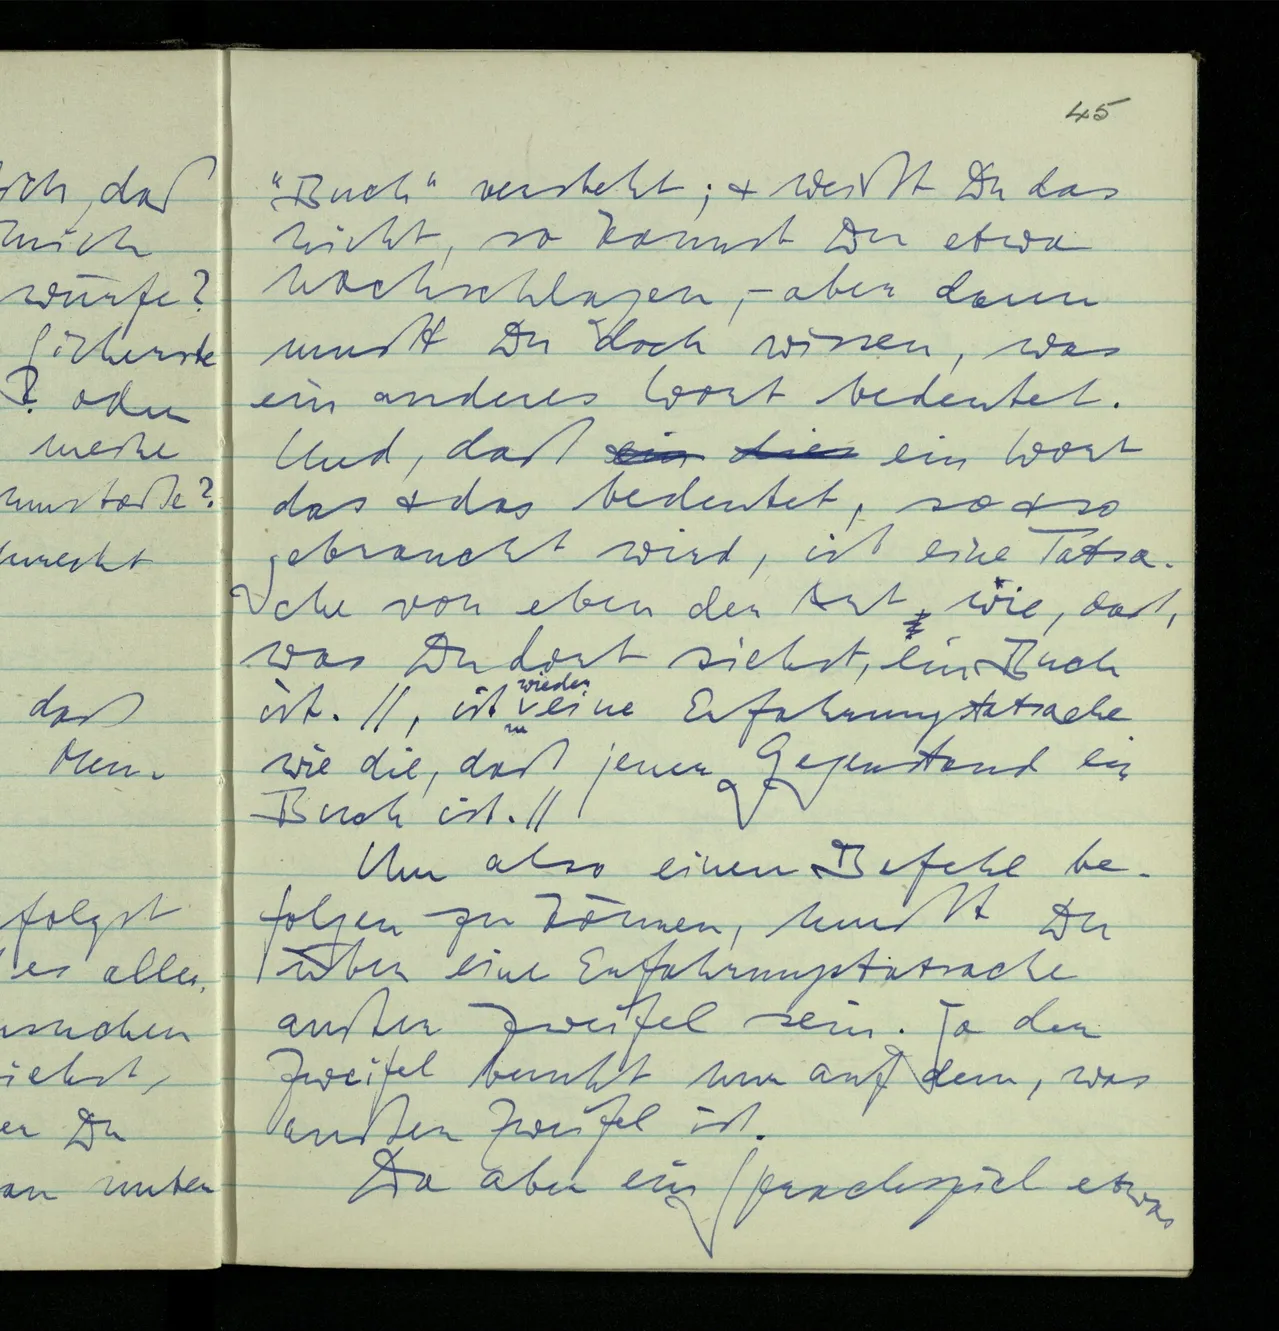 daß
mich
würfe?
sicherste
? oder
meine
daß
Men-
folgst
es alles
siehst,
Du
unten
45
"Buch" versteht; & weißt Du das
nicht, so kannst Du etwa
nachschlagen,– aber dann
mußt Du doch wissen, was
ein anderes Wort bedeutet.
Und, daß ein dies ein Wort
das & das bedeutet, so & so
gebraucht wird, ist eine Tatsa-
che von eben der Art wie, daß,
was Du dort siehst, ein Buch
ist. //, ist wieder eine Erfahrungstatsache
wie die, daß jener Gegenstand ein
Buch ist.//
Um also einen Befehl be-
folgen zu können, mußt Du
über eine Erfahrungstatsache
außer Zweifel sein. Ja der
Zweifel beruht nur auf dem, was
außer Zweifel ist.
Da aber ein Sprachspiel etwas